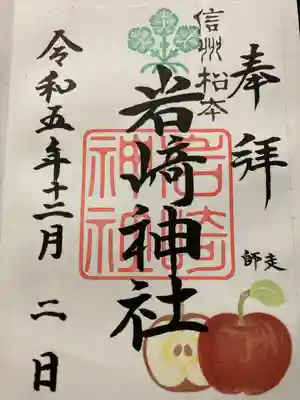 奉拝
師走
信州松本
岩﨑神社
岩崎神社
令和五年十二月二日